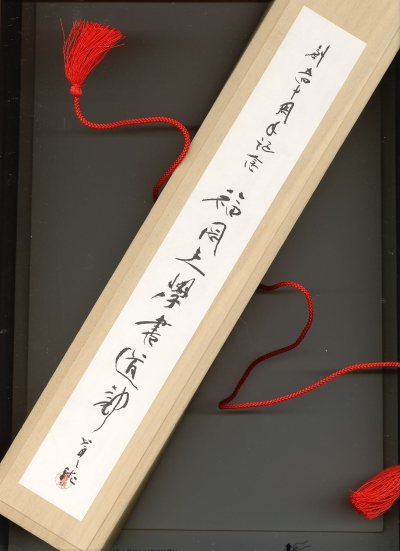 創立十周年記念
福岡大學書道部